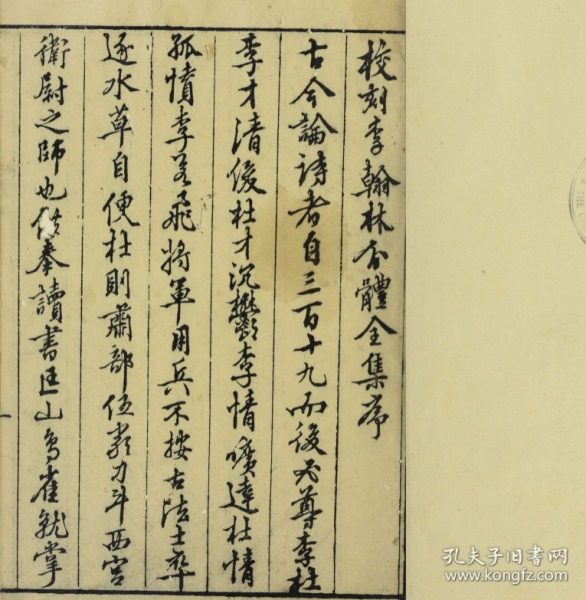 校刻李翰林分體全集序
古今論詩者自三百十九而後必尊李杜
李才清俊杜才沉鬱李情曠達杜情
孤憤李若飛將軍用兵不按古法士卒
逐水草自便杜則肅部伍嚴刀斗西宮
衛尉之師也 秦讀書匡山鳥雀就掌
孔夫子旧书网
KONGFZ.COM